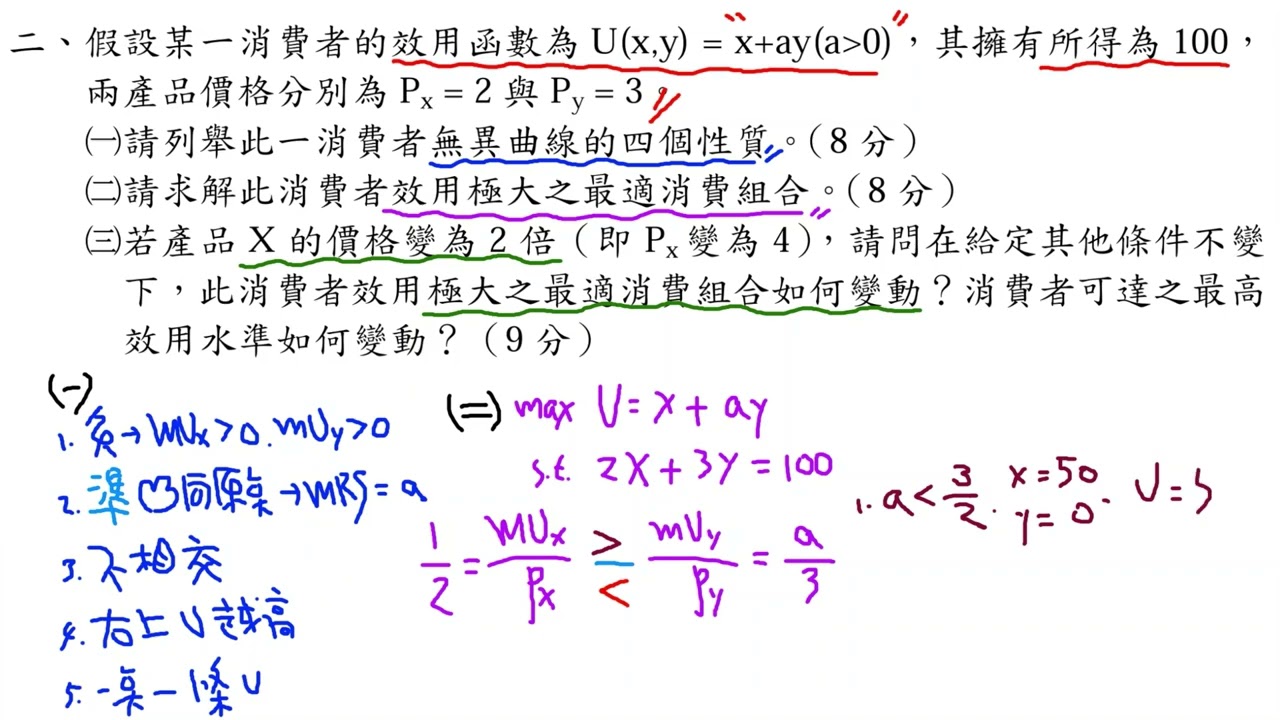 二、假設某一消費者的效用函數為 U(x,y) = x+ay(a>0),其擁有所得為 100,
兩產品價格分別為 Px = 2 與 Py = 3。
㈠請列舉此一消費者無異曲線的四個性質。(8 分)
㈡請求解此消費者效用極大之最適消費組合。(8 分)
㈢若產品 X 的價格變為 2 倍(即 Px 變為 4),請問在給定其他條件不變
下,此消費者效用極大之最適消費組合如何變動?消費者可達之最高
效用水準如何變動?(9 分)
(一)
1. 負→MUx>0. MUy>0
2. 準凹向原點→MRS=a
3. 不相交
4. 右上 U 越高
5. 一點一條 U
(二) max U = x + ay
s.t. 2X + 3Y = 100
1/2 = MUx/Px > < MUy/Py = a/3
1. a < 3/2. x = 50 y = 0. U = 5